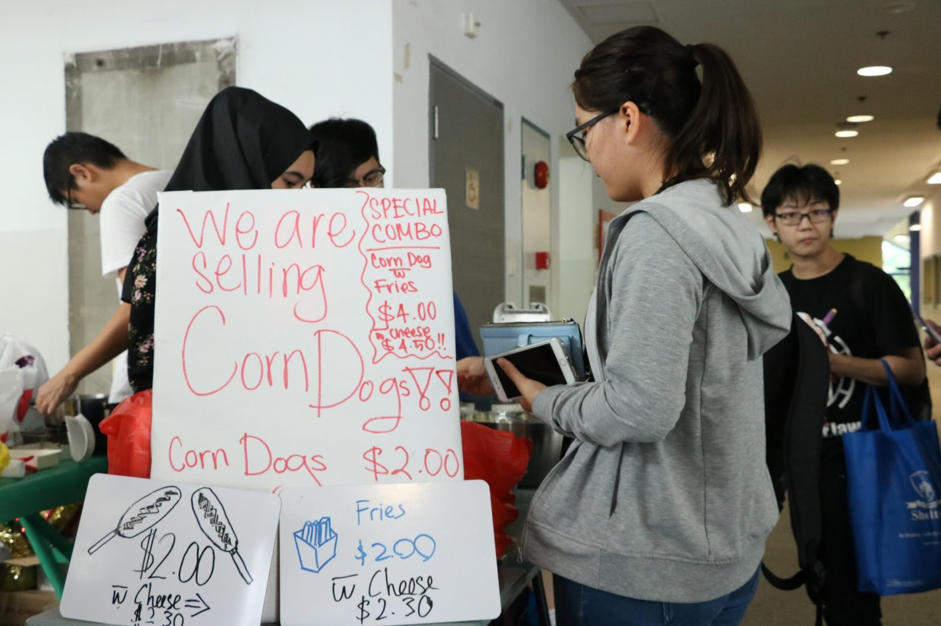 We are
selling
Corn Dogs!!
Corn Dogs $2.00
SPECIAL
COMBO
Corn Dog
w̅
Fries
$4.00
w̅ Cheese
$4.50!!
$2.00
w̅ Cheese ⇒
$2.30
Fries
$2.00
w̅ Cheese
$2.30